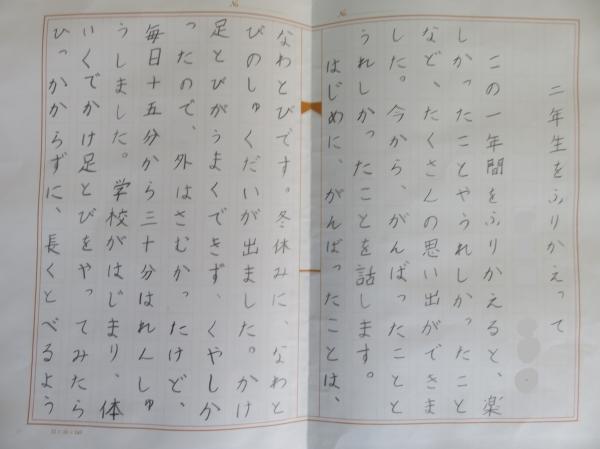 二年生をふりかえって
この一年間をふりかえると、楽
しかったことやうれしかったこと
など、たくさんの思い出ができま
した。今から、がんばったことと
うれしかったことを話します。
はじめに、がんばったことは、
なわとびです。冬休みに、なわと
びのしゅくだいが出ました。かけ
足とびがうまくできず、くやしか
ったので、外はさむかったけど、
毎日十五分から三十分はれんしゅ
うしました。学校がはじまり、体
いくでかけ足とびをやってみたら
ひっかからずに、長くとべるよう